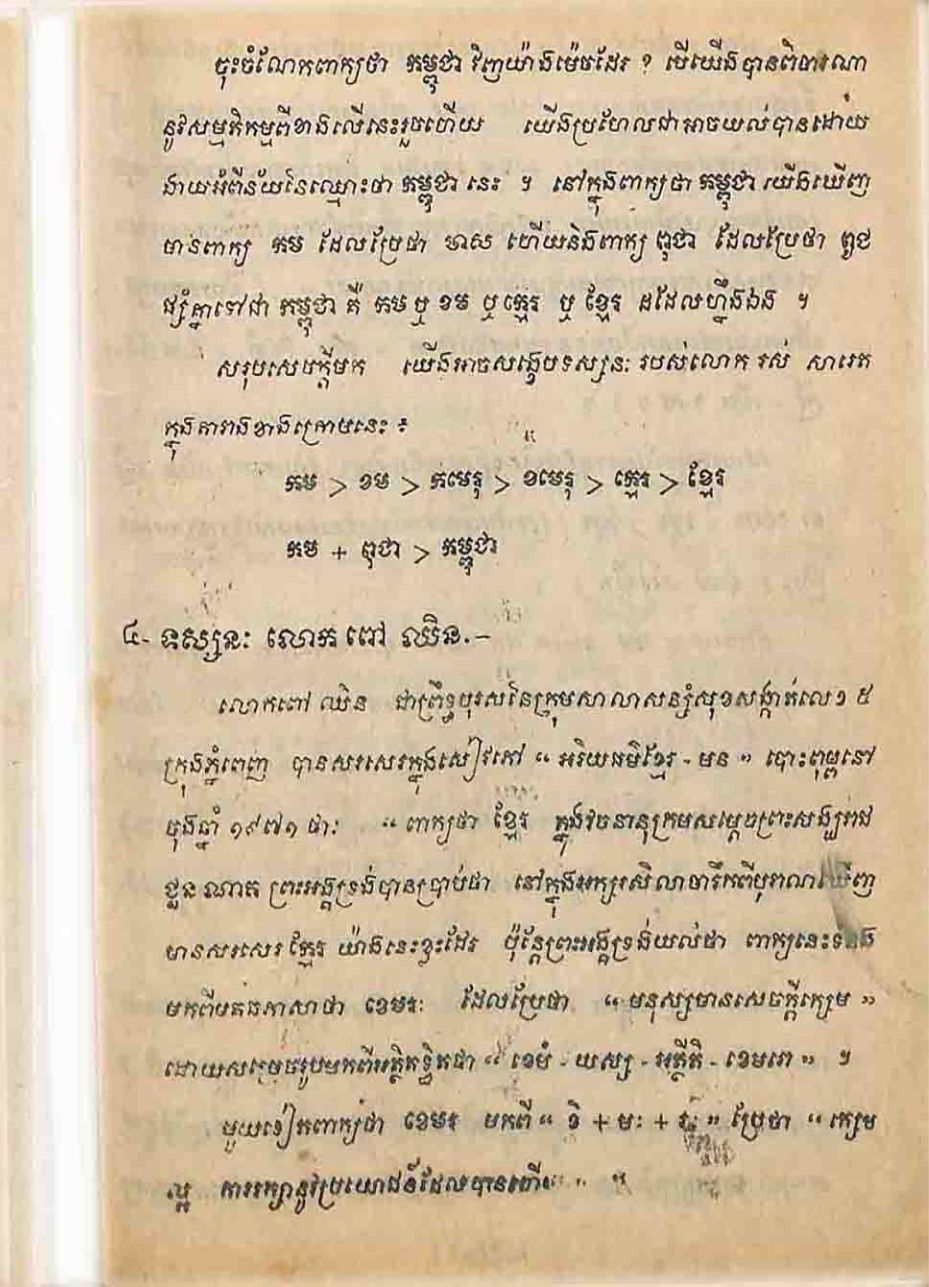 ចុះចំណែកពាក្យថា កម្ពុជា វិញយ៉ាងម៉េចដែរ ? បើយើងបានពិចារណា
នូវសម្មតិកម្មពីខាងលើនេះរួចហើយ យើងប្រហែលជាអាចយល់បានដោយ
ងាយអំពីន័យនៃឈ្មោះថា កម្ពុជា នេះ ។ នៅក្នុងពាក្យថា កម្ពុជា យើងឃើញ
មានពាក្យ កម ដែលប្រែថា មាស ហើយនិងពាក្យ ពុជា ដែលប្រែថា ពូជ
ផ្សំគ្នាទៅជា កម្ពុជា គឺ កម ឬ ខម ឬ ក្មេរ ឬ ខ្មែរ ដដែលហ្នឹងឯង ។
សរុបសេចក្តីមក យើងអាចសង្ខេបទស្សនៈ របស់លោក រស់ សារេត
ក្នុងតារាងខាងក្រោមនេះ ៖
កម > ខម > កមេរុ > ខមេរុ > ក្មេរ > ខ្មែរ
កម + ពុជា > កម្ពុជា
៤- ទស្សនៈ លោក ពៅ ឈិន.-
លោកពៅ ឈិន ជាព្រឹទ្ធបុរសនៃក្រុមសាលាសន្សំសុខសង្កាត់លេខ ៥
ក្រុងភ្នំពេញ បានសរសេរក្នុងសៀវភៅ “ អរិយធម៌ខ្មែរ - មន ” បោះពុម្ពនៅ
ចុងឆ្នាំ ១៩៧១ ថាៈ “ ពាក្យថា ខ្មែរ ក្នុងវចនានុក្រមសម្តេចព្រះសង្ឃរាជ
ជួន ណាត ព្រះអង្គទ្រង់បានប្រាប់ថា នៅក្នុងអក្សរសិលាចារឹកពីបុរាណឃើញ
មានសរសេរ ក្មែរ យ៉ាងនេះខ្លះដែរ ប៉ុន្តែព្រះអង្គទ្រង់យល់ថា ពាក្យនេះ
មកពីមគធភាសាថា ខេមរៈ ដែលប្រែថា “ មនុស្សមានសេចក្តីក្សេម ”
ដោយសម្រេចរូបមកពីអត្ថិតទ្ធិតថា “ ខេមំ - យស្ស - អត្ថីតិ - ខេមរោ ” ។
មួយទៀតពាក្យថា ខេមរ មកពី “ ខិ + មៈ + រៈ ” ប្រែថា “ ក្សេម
ល្អ ការរក្សានូវប្រយោជន៍ដែលបានហើយ ” ។